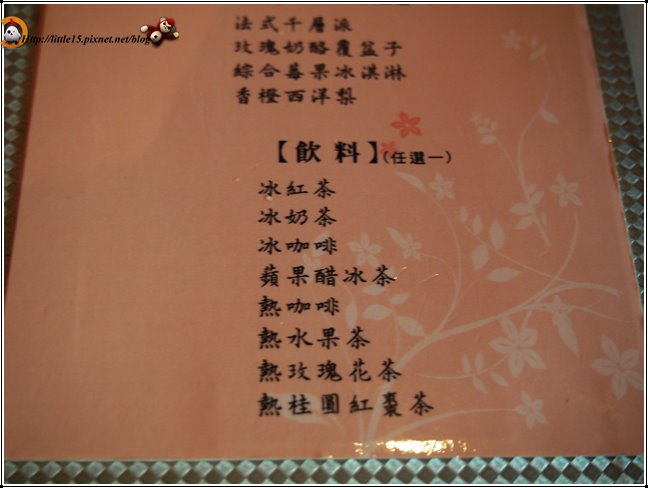 Http://little15.pixnet.net/blog
法式千層派
玫瑰奶酪覆盆子
綜合莓果冰淇淋
香橙西洋梨
【飲料】(任選一)
冰紅茶
冰奶茶
冰咖啡
蘋果醋冰茶
熱咖啡
熱水果茶
熱玫瑰花茶
熱桂圓紅棗茶